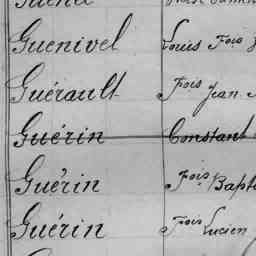 Guenivel Louis Fois
Guérault Fois Jean
Guérin Constant
Guérin Fois Bapt
Guérin Fois Lucien